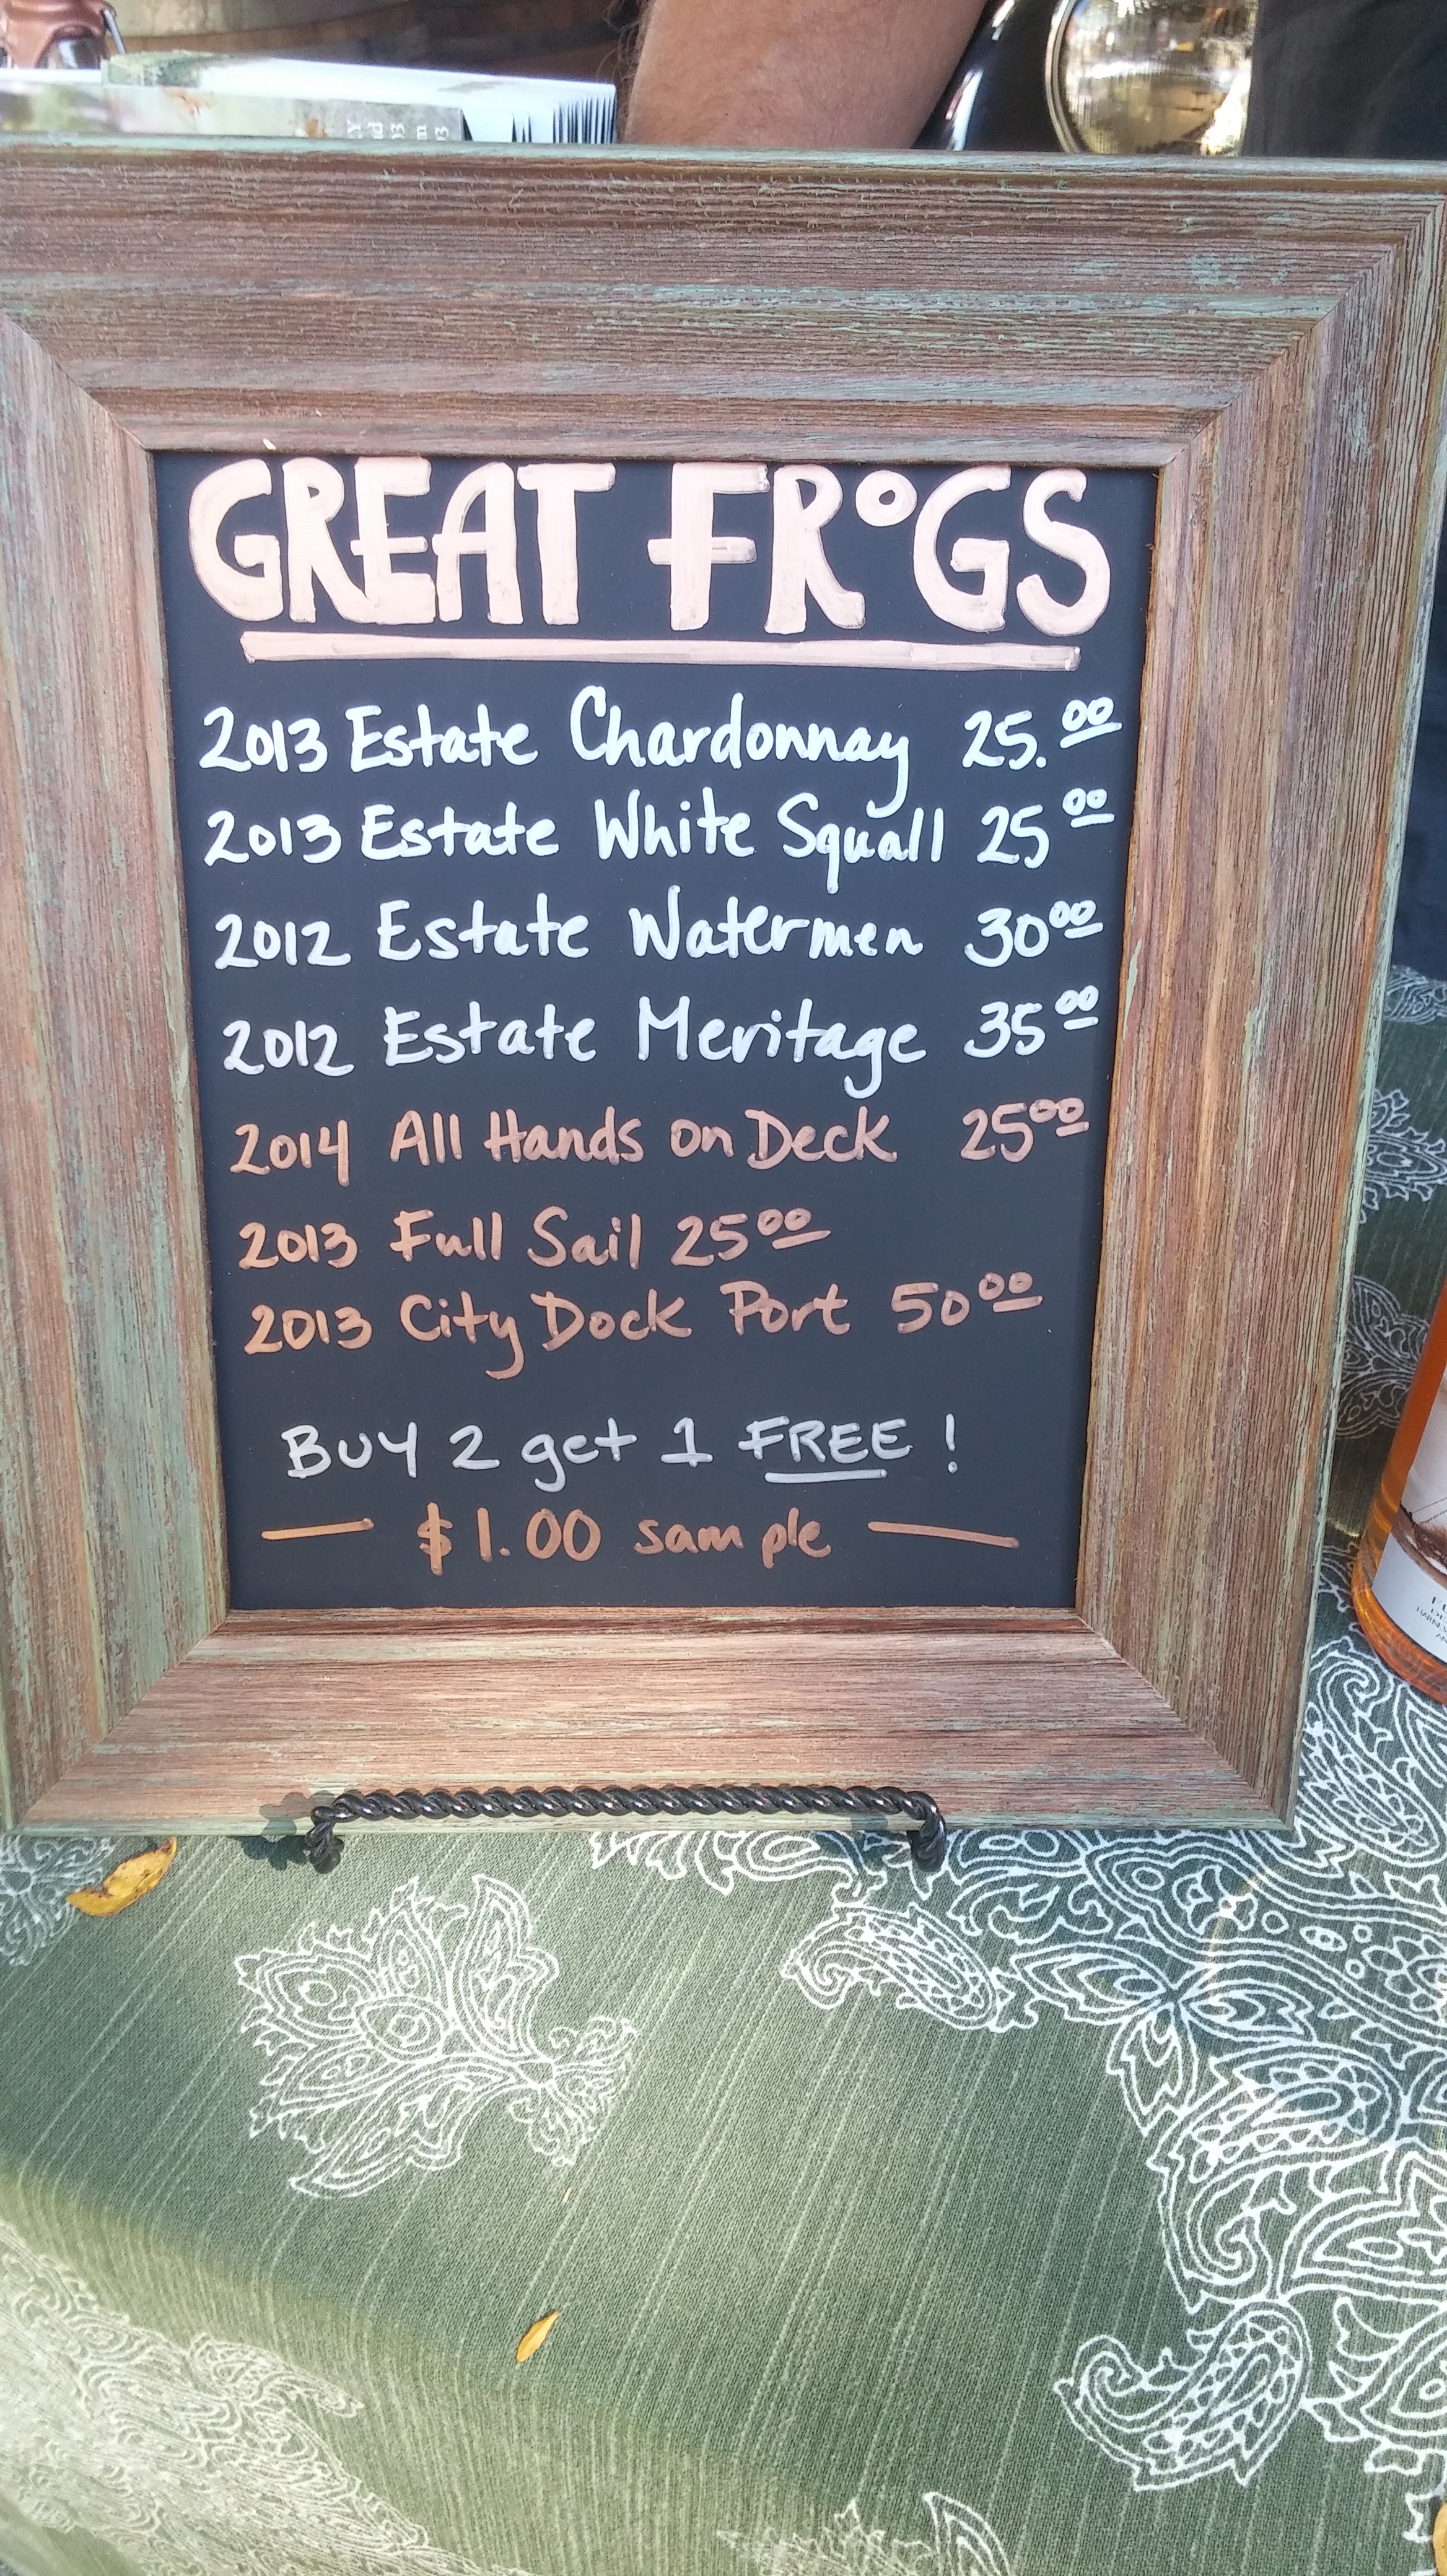 GREAT FROGS
2013 Estate Chardonnay 25.00
2013 Estate White Squall 25 00
2012 Estate Watermen 30 00
2012 Estate Meritage 35 00
2014 All Hands on Deck 25 00
2013 Full Sail 25 00
2013 City Dock Port 50 00
BUY 2 get 1 FREE !
$1.00 sample